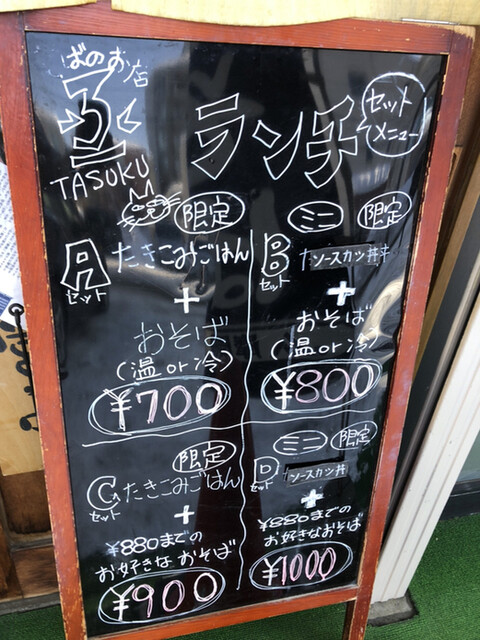 ばのお店
TASUKU
ランチ
セット
メニュー
限定
A
セット
たきこみごはん
+
おそば
(温or冷)
¥700
ミニ
限定
B
セット
ソースカツ丼
+
おそば
(温or冷)
¥800
限定
C
セット
たきこみごはん
+
¥880までの
お好きなおそば
¥900
ミニ
限定
D
セット
ソースカツ丼
+
¥880までの
お好きなおそば
¥1000